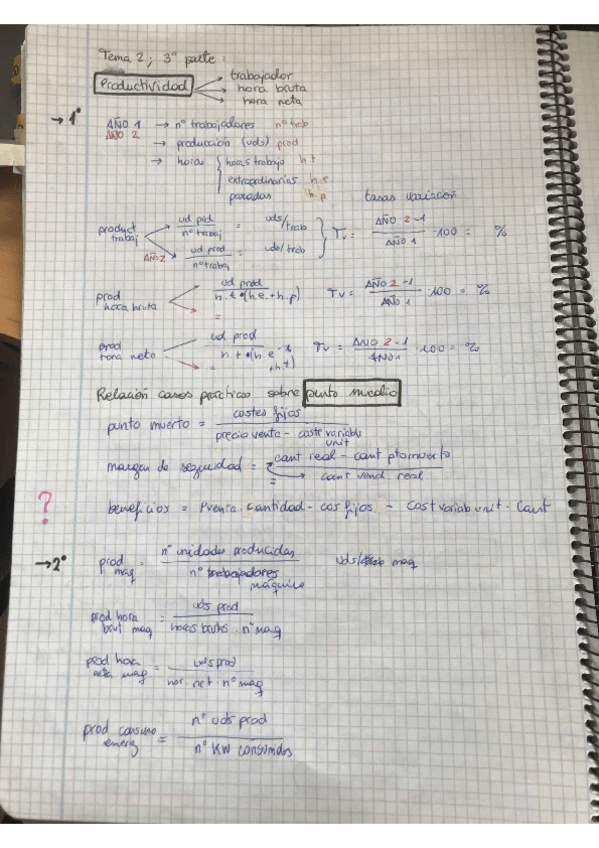 Tema 2; 3º parte:
Productividad
trabajador
hora bruta
hora neta
→ 1º
AÑO 1 → nº trabajadores nº trab
AÑO 2
→ produccion (uds) prod
→ horas { horas trabajo h.t
extraordinarias h.e
paradas h.p
tasas variacion
product trabaj
ud prod / nº trabaj = uds/trab
AÑO 2 ud prod / nº trabaj = uds/trab
Tv = AÑO 2 - 1 / AÑO 1 · 100 = %
prod hora bruta
ud prod / h.t · (h.e. + h.p)
=
Tv = AÑO 2 - 1 / AÑO 1 · 100 = %
prod hora neta
ud prod
=
Tv = AÑO 2 - 1 / AÑO 1 · 100 = %
Relación casos prácticos sobre punto muerto
punto muerto = costes fijos / precio venta - coste variable unit
margen de seguridad = cant real - cant pto muerto / cant vend real
=
? beneficios = Pventa · Cantidad - cos fijos - Cost variab unit · Cant
→ 2º
prod maq = nº unidades producidas / nº trabajadores máquina uds/trab maq
prod hora brut maq = uds prod / horas brutas · nº maq
prod hora neta maq = uds prod / hor net · nº maq
prod consumo energ = nº uds prod / nº KW consumidos